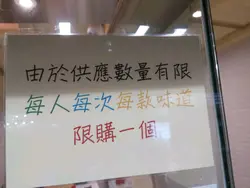 由於供應數量有限
每人每次每款味道
限購一個